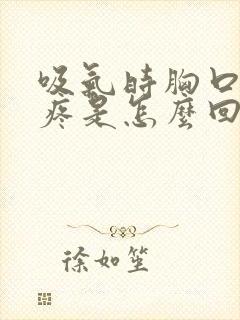 吸氣時胸口
疼是怎麼回
徐如笙